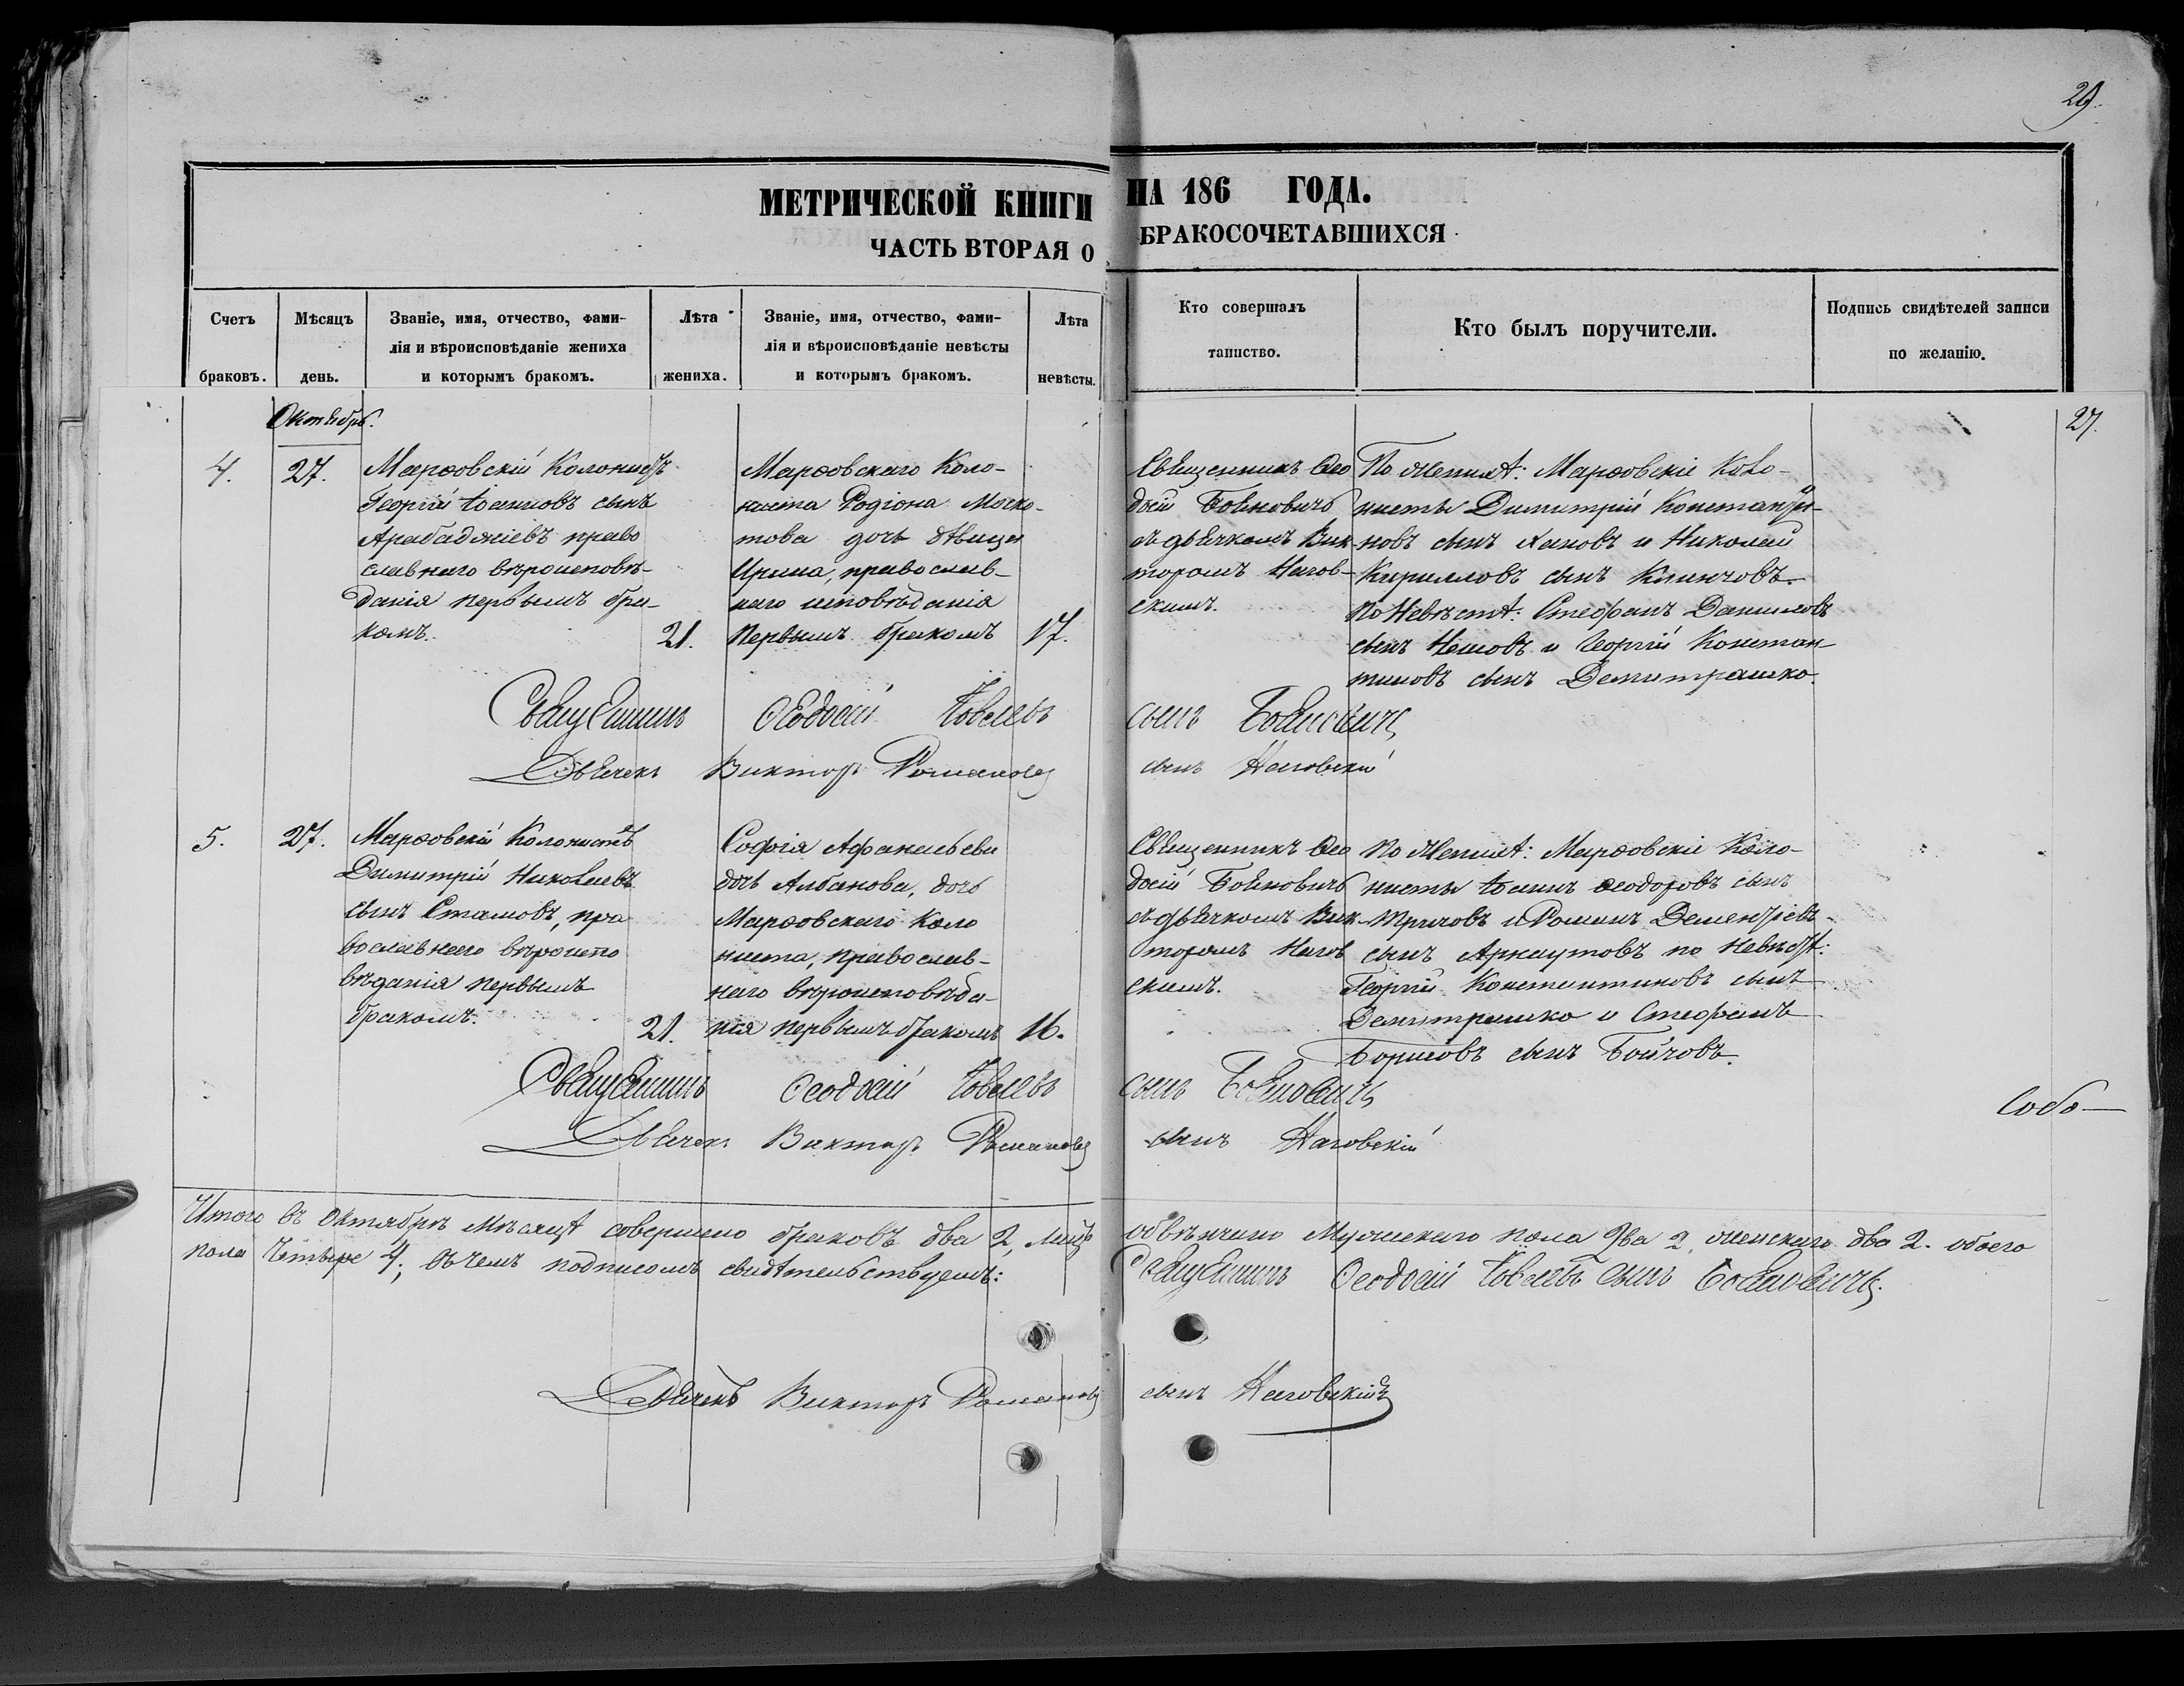 29.
МЕТРИЧЕСКОЙ КНИГИ НА 186 ГОДА.
ЧАСТЬ ВТОРАЯ О БРАКОСОЧЕТАВШИХСЯ
Счетъ браковъ.
Мѣсяцъ день.
Званіе, имя, отчество, фами-
лія и вѣроисповѣданіе жениха
и которымъ бракомъ.
Лѣта жениха.
Званіе, имя, отчество, фами-
лія и вѣроисповѣданіе невѣсты
и которымъ бракомъ.
Лѣта невѣсты.
Кто совершалъ
таинство.
Кто былъ поручители.
Подпись свидѣтелей записи
по желанію.
Октябрь.
27.
4.
27.
Марзовскій Колонистъ
Георгій Іоанновъ сынъ
Арабаджіевъ право
славнаго вѣроисповѣ-
данія первымъ бра-
комъ.
21.
Марзовскаго Коло-
ниста Родіона
дочь дѣвица
Ирина, православ-
наго исповѣданія
первымъ бракомъ
17.
Священникъ Ѳео
досій Боѣновичъ
съ дьячкомъ Вик-
торомъ Нагов-
скимъ.
По женихѣ: Марзовскіе Коло-
нисты Димитрій Константи-
новъ сынъ Хановъ и Николай
Кирилловъ сынъ Клинчовъ.
По Невѣстѣ: Стефанъ Даниловъ
сынъ Неновъ и Георгій Констан-
тиновъ сынъ Демитрашко.
Священникъ Ѳеодосій Іовлевъ сынъ Боѣновичъ
Дьячекъ Викторъ Романовъ сынъ Наговскій
5.
27.
Марзовскій Колонистъ
Димитрій Николаевъ
сынъ Стамовъ, пра
вославнаго вѣроиспо
вѣданія первымъ
бракомъ.
21.
Софія Афанасьева
дочь Албанова, дочь
Марзовскаго Коло
ниста, православ-
наго вѣроисповѣда-
нія первымъ бракомъ
16.
Священникъ Ѳео
досій Боѣновичъ
съ дьячкомъ Вик
торомъ Нагов
скимъ.
По женихѣ: Марзовскіе Коло-
нисты Іоаннъ Ѳеодоровъ сынъ
Тричовъ и Романъ Дементіевъ
сынъ Арнаутовъ по Невѣстѣ:
Георгій Константиновъ сынъ
Демитрашко и Стефанъ
Борисовъ сынъ Бойчовъ.
Священникъ Ѳеодосій Іовлевъ сынъ Боѣновичъ
Собо-
Дьячекъ Викторъ Романовъ сынъ Наговскій
Итого въ Октябрѣ мѣсяцѣ совершено браковъ два 2, лицъ обвѣнчано Мужескаго пола два 2, женскаго два 2. обоего
пола Четыре 4; въ чемъ подписомъ свидѣтельствуемъ: Священникъ Ѳеодосій Іовлевъ сынъ Боѣновичъ.
Дьячекъ Викторъ Романовъ сынъ Наговскій